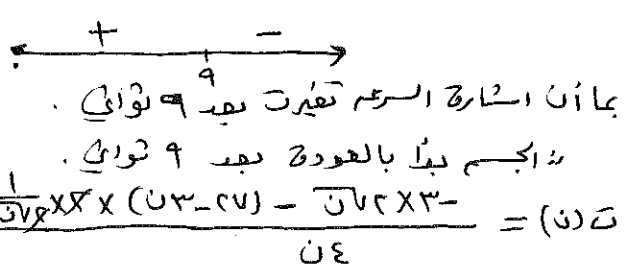 + −
٩
بما أن اشارة السرعه تغيرت بعد ٩ ثواني .
∴ الجسم بدأ بالعودة بعد ٩ ثواني .
ت(ن) = \frac{-٣×٢\sqrt{ن} - (٢٧-٣ن) × ٢ × \frac{١}{٢\sqrt{ن}}}{٤ن}